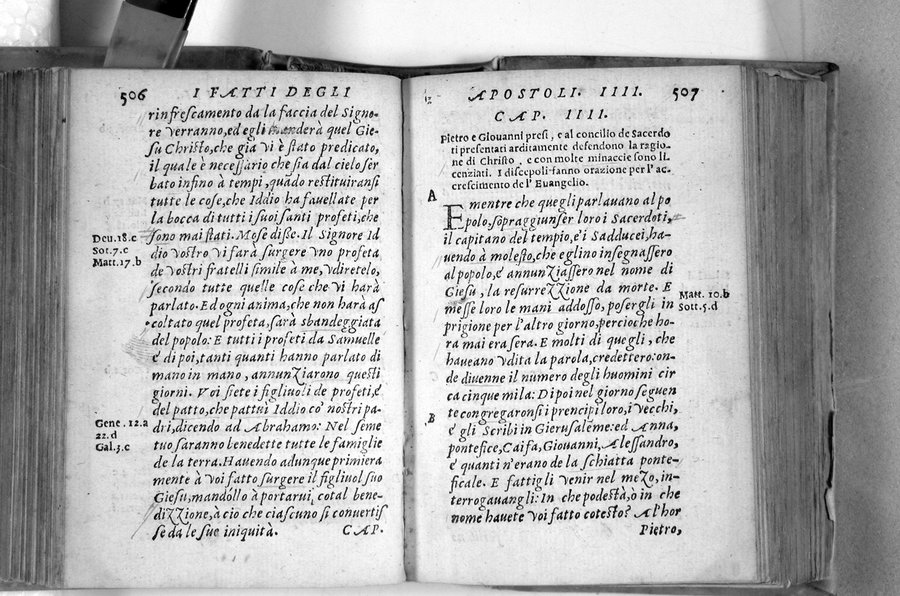 506 I FATTI DEGLI
rinfrescamento da la faccia del Signo-
re verranno, ed egli manderà quel Gie-
su Christo, che gia vi è stato predicato,
il quale è necessario che sia dal cielo ser
bato infino à tempi, quãdo restituiransi
tutte le cose, che Iddio ha fauellate per
la bocca di tutti i suoi santi profeti, che
sono mai stati. Mose disse. Il Signore Id
dio vostro vi farà surgere vno profeta
de vostri fratelli simile à me, vdiretelo,
secondo tutte quelle cose che vi harà
parlato. Ed ogni anima, che non harà as
coltato quel profeta, sarà sbandeggiata
del popolo: E tutti i profeti da Samuelle
è di poi, tanti quanti hanno parlato di
mano in mano, annunZiarono questi
giorni. Voi siete i figliuoli de profeti, è
del patto, che pattui Iddio co' nostri pa-
dri, dicendo ad Abrahamo: Nel seme
tuo saranno benedette tutte le famiglie
de la terra. Hauendo adunque primiera
mente à voi fatto surgere il figliuol suo
Giesu, mandollo à portarui, cotal bene-
diZZione, à cio che ciascuno si convertis
se da le sue iniquità. CAP.
Deu. 18. c
Sot. 7. c
Matt. 17. b
Gene. 12. a
22. d
Gal. 3. c
APOSTOLI. IIII. 507
CAP. IIII.
Pietro e Giouanni presi, e al concilio de Sacerdo
ti presentati arditamente defendono la ragio-
ne di Christo, e con molte minaccie sono li-
cenziati. I discepoli fanno orazione per l'ac-
crescimento del' Euangelio.
A
E mentre che quegli parlauano al po
polo, sopraggiunser loro i Sacerdoti,
il capitano del tempio, è i Sadducei, ha-
uendo à molesto, che eglino insegnassero
al popolo, è annunZiassero nel nome di
Giesu, la resurreZZione da morte. E
messe loro le mani addosso, posergli in
prigione per l'altro giorno, percioche ho-
ra mai era sera. E molti di quegli, che
haueano vdita la parola, credettero: on-
de diuenne il numero degli huomini cir
ca cinque mila: Di poi nel giorno seguen
te congregaronsi i prencipi loro, i vecchi,
B
è gli Scribi in Gierusalẽme: ed Anna,
pontefice, Caifa, Giouanni, Alessandro,
è quanti n'erano de la schiatta ponte-
ficale. E fattigli venir nel meZo, in-
terrogauangli: In che podestà, ò in che
nome hauete voi fatto cotesto? Al' hor
Pietro,
Matt. 10. b
Sott. 5. d